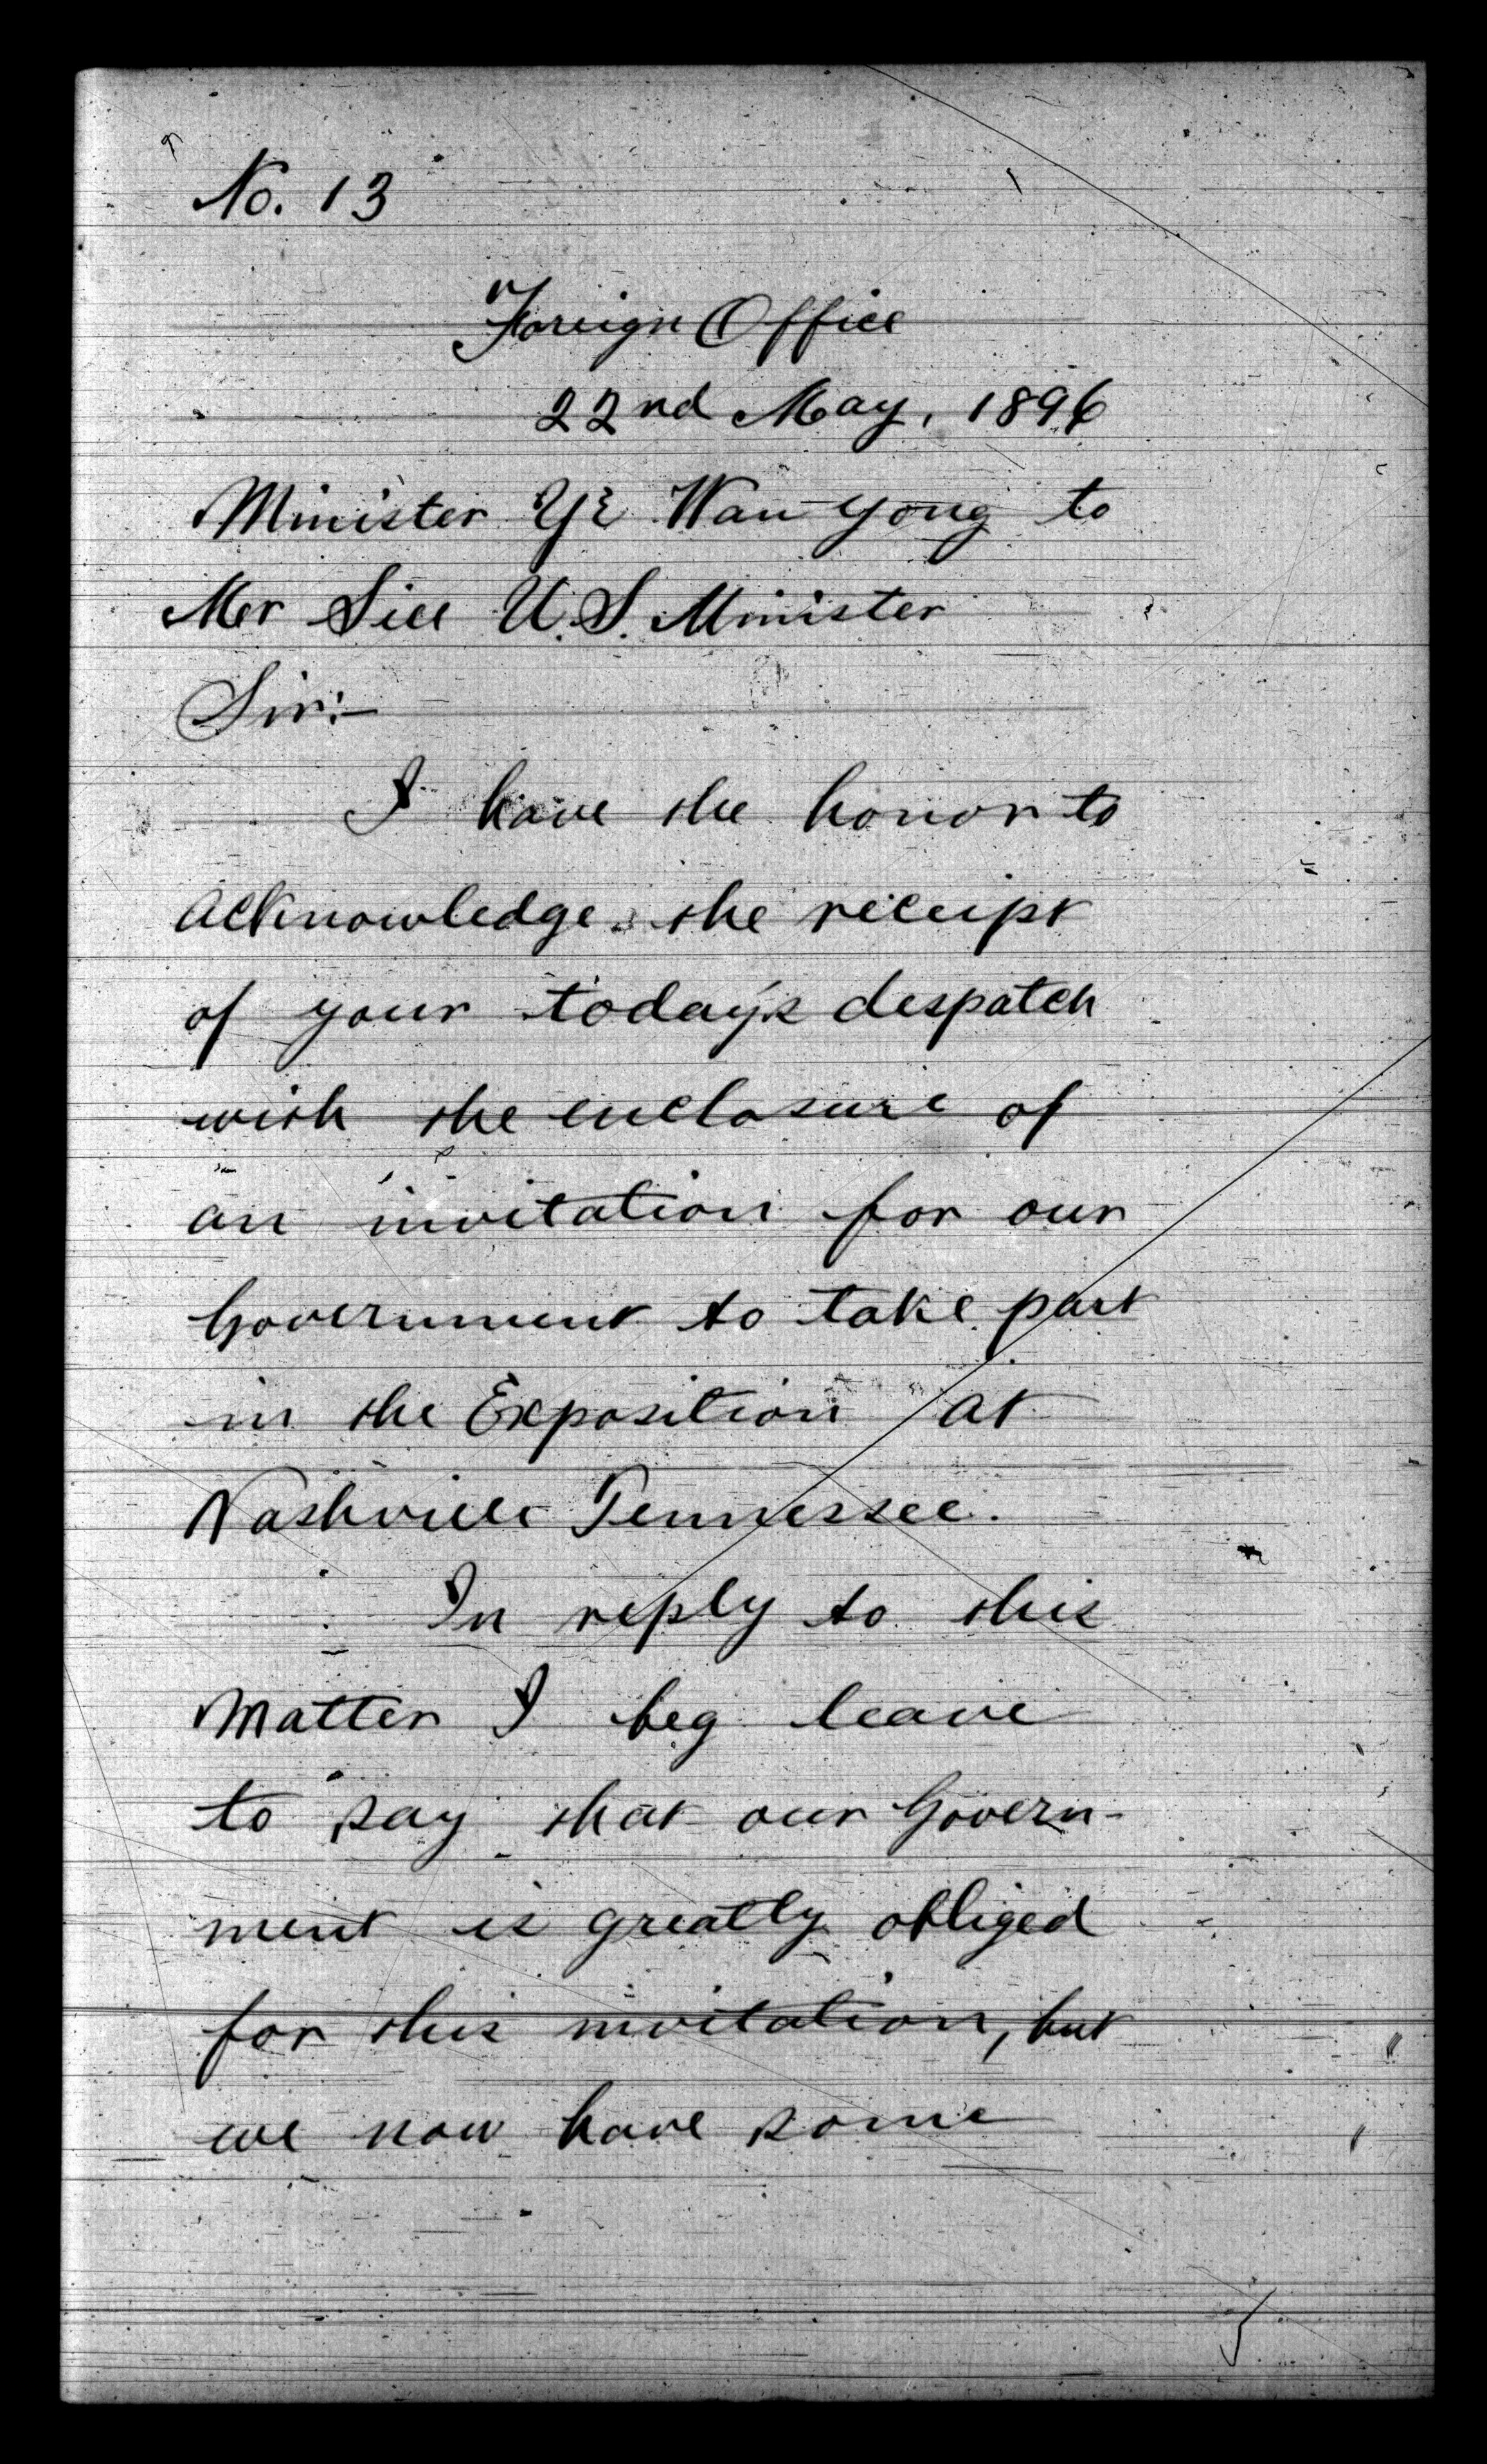 No. 13
Foreign Office
22nd May, 1896
Minister Ye Wan Yong to
Mr Sill U.S. Minister
Sir:—
I have the honor to
acknowledge the receipt
of your today's despatch
with the enclosure of
an invitation for our
Government to take part
in the Exposition at
Nashville Tennessee.
In reply to this
Matter I beg leave
to say that our Govern-
ment is greatly obliged
for this invitation, but
we now have some